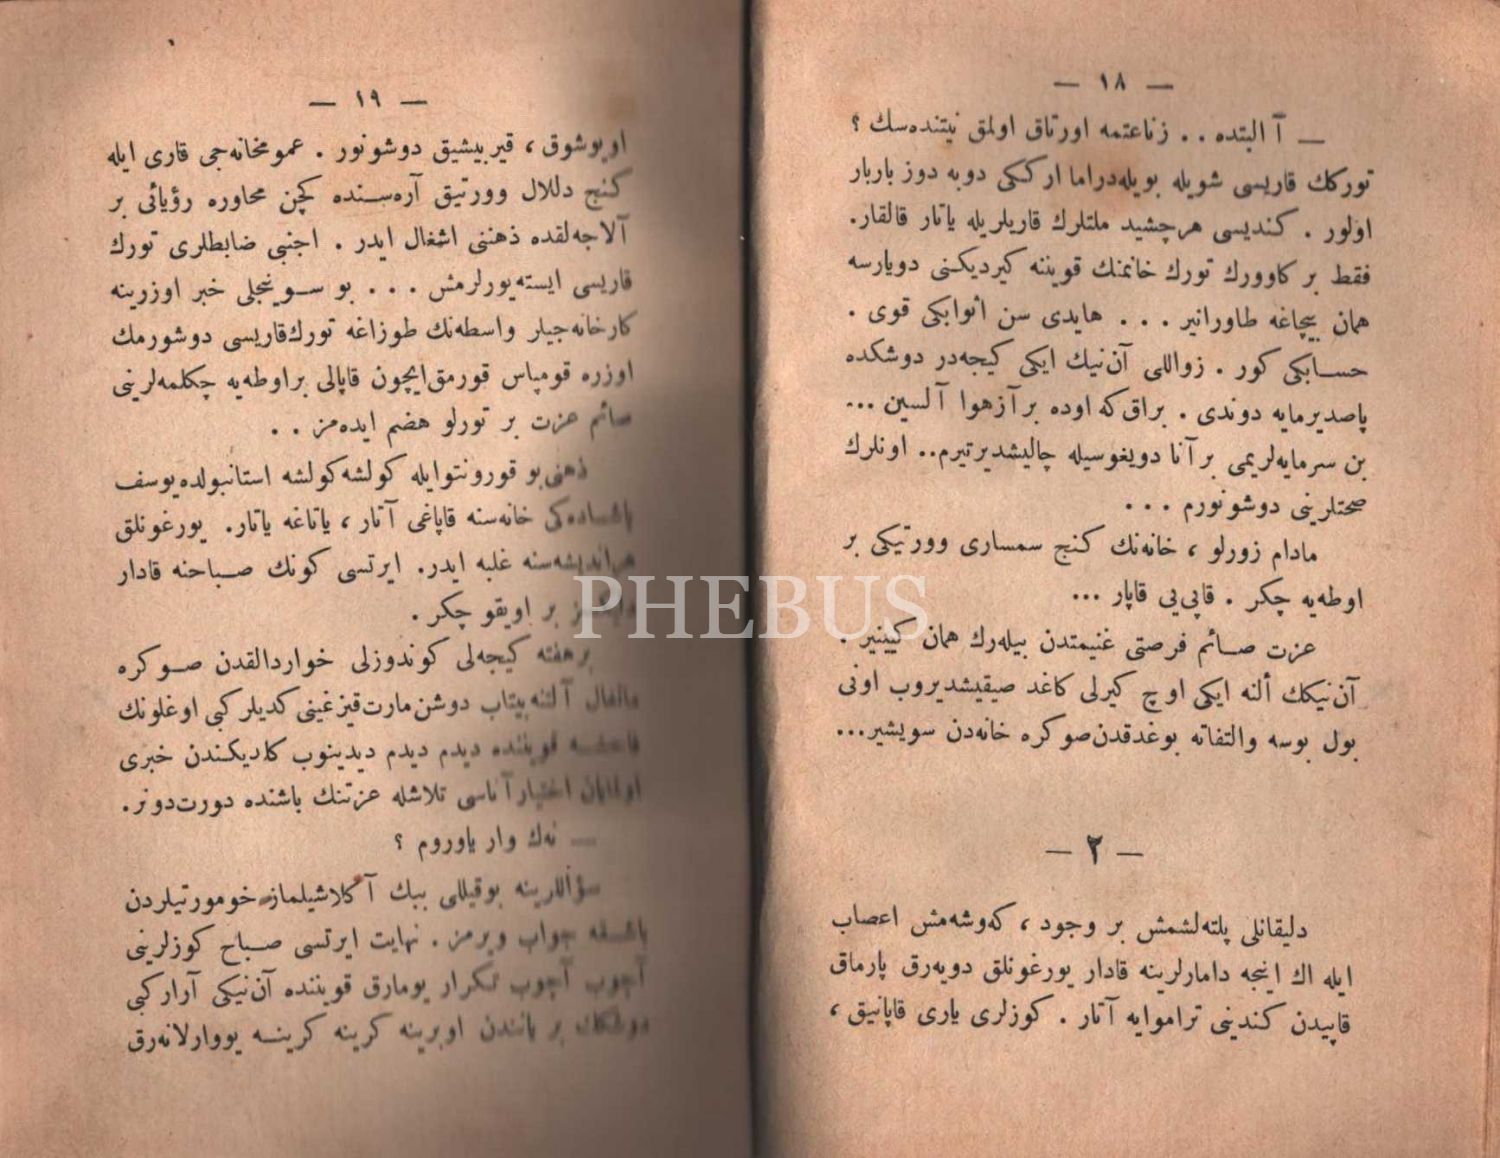 — ١٨ —
— آ البتده . . زناعتمه اورتاق اولمق نيتنده‌سك ؟
توركك قاريسى شويله بويله‌دراما اركى دوبه دوز باربار
اولور . كنديسى هرچشيد ملتلرك قاريلريله ياتار قالقار.
فقط بر كاوورك تورك خانمنك قويننه كيرديكنى دويارسه
همان بيچاغه طاورانير . . . هايدى سن اثوابكى قوى .
حسابكى كور . زواللى آن‌نيك ايكى كيجه‌در دوشكده
پاصديرمايه دوندى . براق‌كه اوده برآزهوا آلسين ...
بن سرمايه‌لريمى برآنا دويغوسيله چاليشديرتيرم.. اونلرك
صحتلرينى دوشونورم . . .
مادام زورلو ، خانه‌نك كنج سمسارى وورتيكى بر
اوطه‌يه چكر . قاپى‌يى قاپار ...
عزت صائم فرصتى غنيمتدن بيله‌رك همان كيينير .
آن‌نيكك ألنه ايكى اوچ كيرلى كاغد صيقيشديروب اونى
بول بوسه والتفاته بوغدقدن‌صوكره خانه‌دن سويشير...
— ٢ —
دليقانلى پلته‌لشمش بر وجود ، كه‌وشه‌مش اعصاب
ايله اك اينجه دامارلرينه قادار يورغونلق دويه‌رق پارماق
قاپيدن كندينى تراموايه آتار . كوزلرى يارى قاپانيق ،
— ١٩ —
اويوشوق ، قيريشيق دوشونور . عمومخانه‌جى قارى ايله
كنج دللال وورتيق آره‌سنده كچن محاوره رؤيائى بر
آلاجه‌لقده ذهننى اشغال ايدر . اجنبى ضابطلرى تورك
قاريسى ايسته‌يورلرمش . . . بو سوينجلى خبر اوزرينه
كارخانه‌جيلر واسطه‌نك طوزاغه تورك‌قاريسى دوشورمك
اوزره قومپاس قورمق‌ايچون قاپالى براوطه‌يه چكلمه‌لرينى
صائم عزت بر تورلو هضم ايده‌مز . .
ذهنى‌بو قورونتوايله كولشه‌كولشه استانبولده‌يوسف
پاشاده‌كى خانه‌سنه قاپاغى آتار ، ياتاغه ياتار. يورغونلق
هراندیشه‌سنه غلبه ايدر. ايرتسى كونك صباحنه قادار
بر اويقو چكر .
برهفته كيجه‌لى كوندوزلى خواردالقدن صوكره
آلتنه بيتاب دوشن‌مارت‌قيزغينى كديلركبى اوغلونك
قويننده ديدم ديدم ديدينوب كلديكندن خبرى
اولمايان اختيارآناسى تلاشله عزتنك باشنده دورت‌دونر.
— نه‌ك وار ياوروم ؟
سؤاللرينه بوقيللى ببك آكلاشيلماز خومورتيلردن
باشقه جواب ويرمز . نهايت ايرتسى صباح كوزلرينى
آچوب آچوب تكرار يومارق قويننده آن‌نيكى آراركبى
دوشكك بر يانندن اوبرينه كرينه كرينه يووارلانه‌رق
PHEBUS